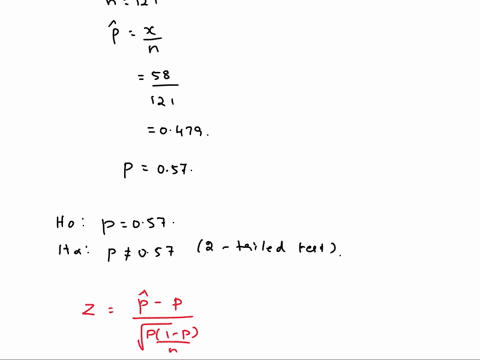 n = 121
p̂ = x/n
= 58/121
= 0.479.
p = 0.57.
Ho: p = 0.57.
Ha: p ≠ 0.57 (2 - tailed test).
z = (p̂ - p)/√(p(1-p)/n)